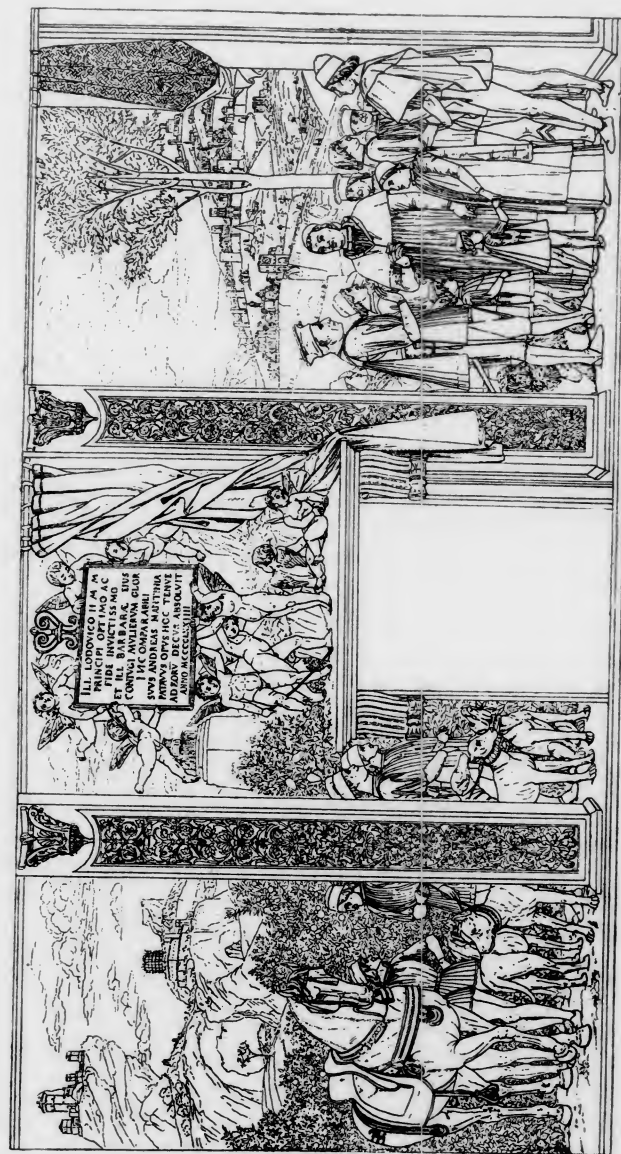 ILL. LODOVICO II M M
PRINCIPI OPTIMO AC
FIDE INVICTISSIMO
ET ILL BARBARÆ EIUS
CONIUGI MULIERUM GLOR
INCOMPARABILI
SUUS ANDREAS MANTINIA
PATAVUS OPUS HOCC TENUE
AD EORU DECUS ABSOLVIT
ANNO MCCCCLXXIIII